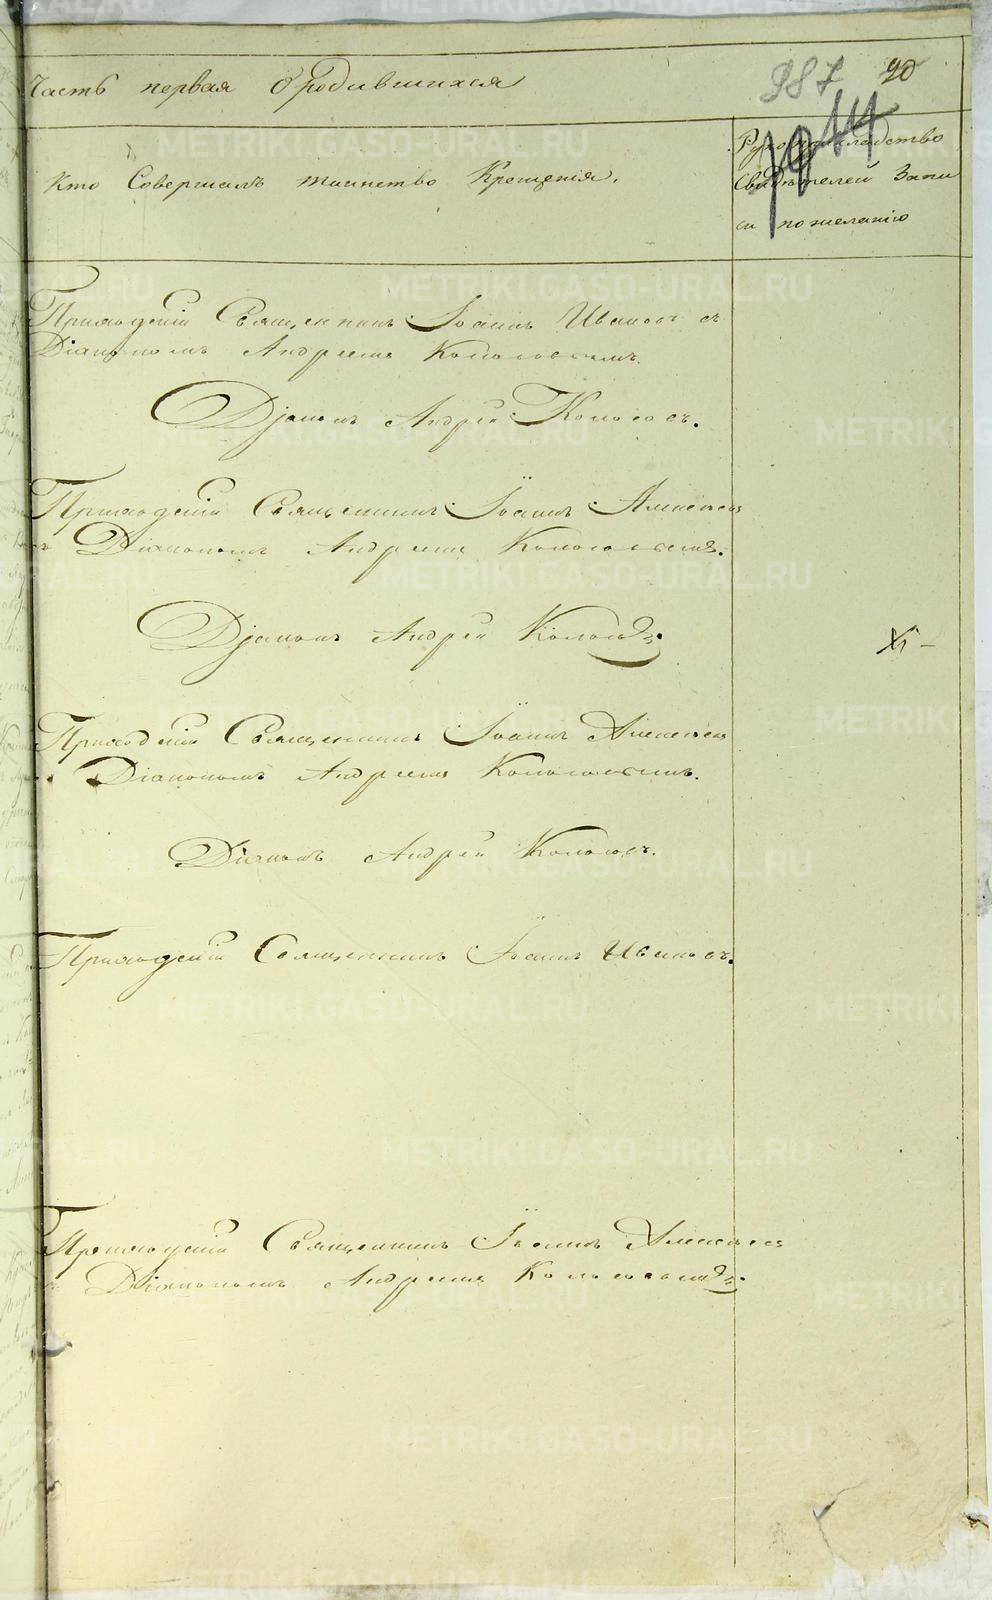 Часть первая о родившихся
987 20
1014
Кто Совершалъ таинство Крещенія.
Рукоприкладство
Свидѣтелей Запи
си по желанію
Приходскій Священникъ Іоаннъ Ивановъ съ
Діакономъ Андреемъ Колосовскимъ.
Діаконъ Андрей Колосовъ.
Приходскій Священникъ Іоаннъ Алексѣевъ
съ Діакономъ Андреемъ Колосовскимъ.
Діаконъ Андрей Колосовъ
Приходскій Священникъ Іоаннъ Алексѣевъ
Діакономъ Андреемъ Колосовскимъ.
Діаконъ Андрей Колосовъ.
Приходскій Священникъ Іоаннъ Ивановъ.
Приходскій Священникъ Іоаннъ Алексѣевъ
Діакономъ Андреемъ Колосовскимъ
METRIKI.GASO-URAL.RU